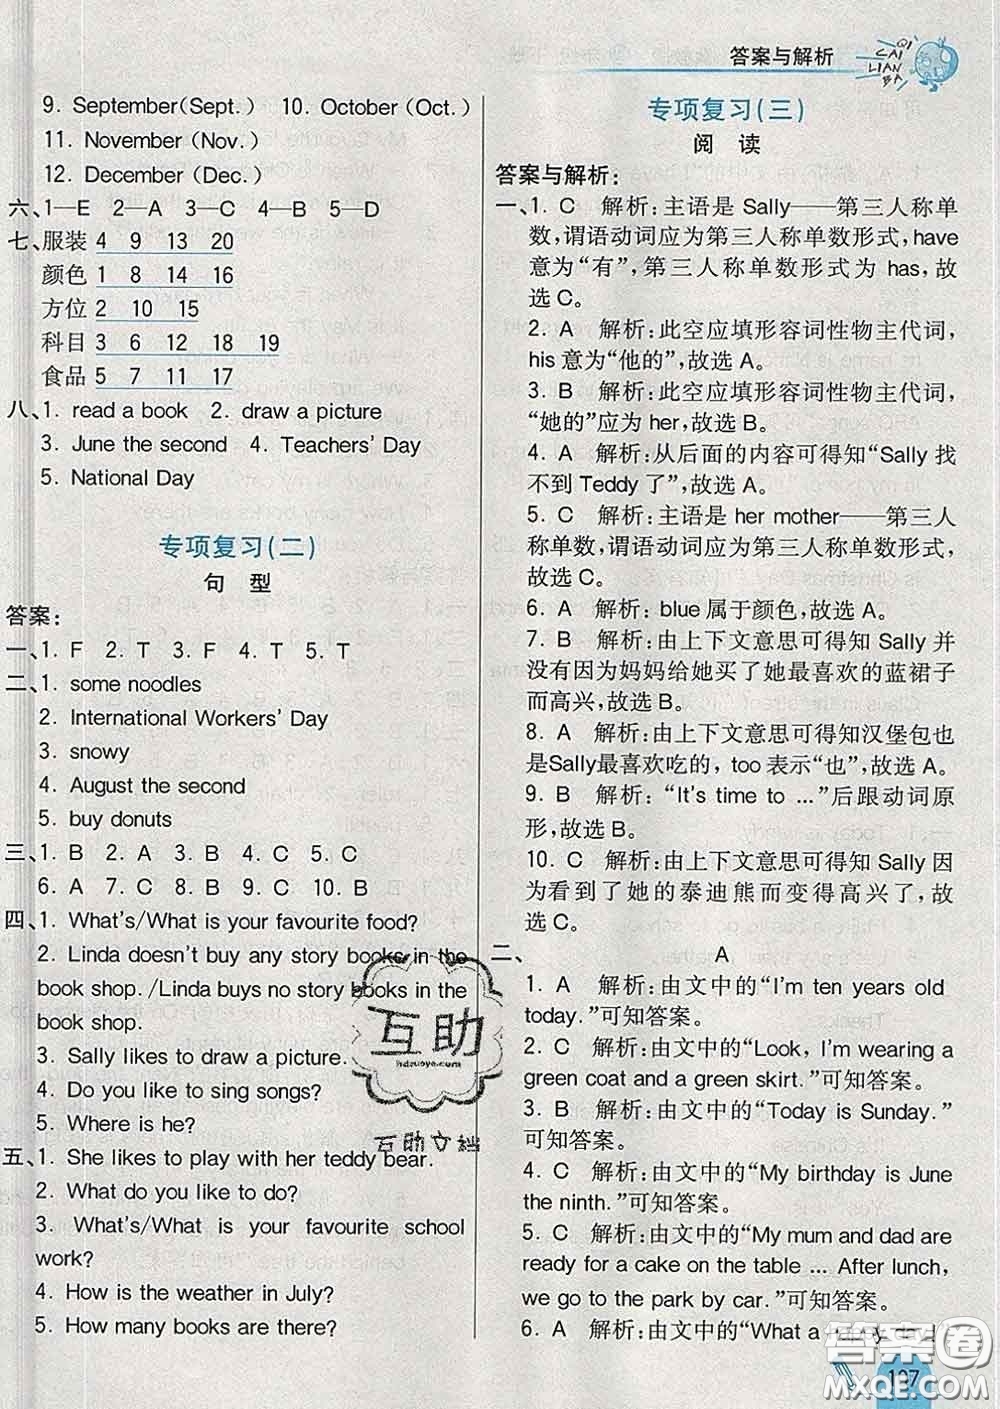 答案与解析
QI
CAI
LIAN
BA
9. September(Sept.) 10. October(Oct.)
11. November(Nov.)
12. December(Dec.)
六、1—E 2—A 3—C 4—B 5—D
七、服装 4 9 13 20
颜色 1 8 14 16
方位 2 10 15
科目 3 6 12 18 19
食品 5 7 11 17
八、1. read a book 2. draw a picture
3. June the second 4. Teachers' Day
5. National Day
专项复习(二)
句 型
答案:
一、1. F 2. T 3. F 4. T 5. T
二、1. some noodles
2. International Workers' Day
3. snowy
4. August the second
5. buy donuts
三、1. B 2. A 3. B 4. C 5. C
6. A 7. C 8. C 9. C 10. B
四、1. What's/What is your favourite food?
2. Linda doesn't buy any story books in the
book shop. /Linda buys no story books in the
book shop.
3. Sally likes to draw a picture.
4. Do you like to sing songs?
5. Where is he?
五、1. She likes to play with her teddy bear.
2. What do you like to do?
3. What's/What is your favourite school
work?
4. How is the weather in July?
5. How many books are there?
专项复习(三)
阅 读
答案与解析:
一、1. C 解析:主语是 Sally——第三人称单
数,谓语动词应为第三人称单数形式,have
意为“有”,第三人称单数形式为 has,故
选 C。
2. A 解析:此空应填形容词性物主代词,
his 意为“他的”,故选 A。
3. B 解析:此空应填形容词性物主代词,
“她的”应为 her,故选 B。
4. A 解析:从后面的内容可得知“Sally 找
不到 Teddy 了”,故选 A。
5. C 解析:主语是 her mother——第三人
称单数,谓语动词应为第三人称单数形式,
故选 C。
6. A 解析:blue 属于颜色,故选 A。
7. B 解析:由上下文意思可得知 Sally 并
没有因为妈妈给她买了她最喜欢的蓝裙子
而高兴,故选 B。
8. A 解析:由上下文意思可得知汉堡包也
是Sally最喜欢吃的,too 表示“也”,故选 A。
9. B 解析:“It's time to ...”后跟动词原
形,故选 B。
10. C 解析:由上下文意思可得知 Sally 因
为看到了她的泰迪熊而变得高兴了,故
选 C。
二、 A
1. A 解析:由文中的“I'm ten years old
today.”可知答案。
2. C 解析:由文中的“Look, I'm wearing a
green coat and a green skirt.”可知答案。
3. B 解析:由文中的“Today is Sunday.”
可知答案。
4. C 解析:由文中的“My birthday is June
the ninth.”可知答案。
5. C 解析:由文中的“My mum and dad are
ready for a cake on the table ... After lunch,
we go to the park by car.”可知答案。
6. A 解析:由文中的“What a
互助
hdzuoye.com
互助文档
答案圈
MXQE.COM
107